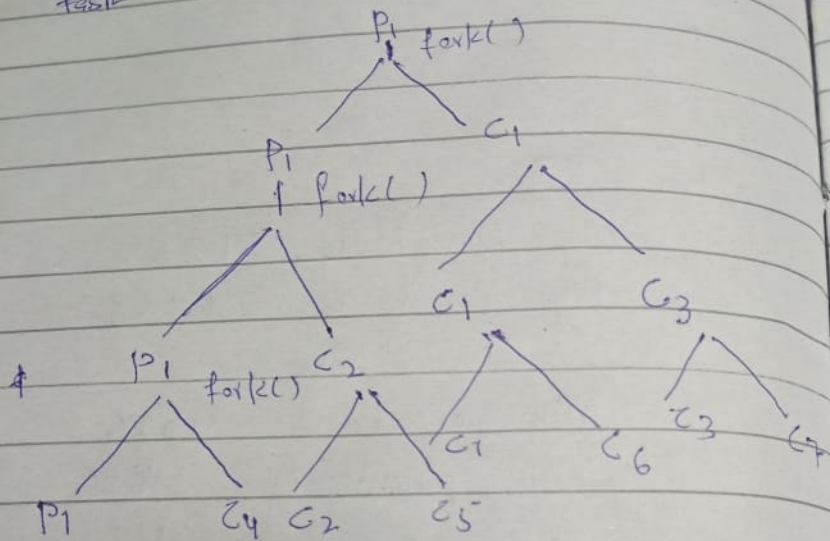 P1 fork()
P1 C1
fork()
C1 C3
P1 fork() C2
C1 C6 C3 C7
P1 C4 C2 C5